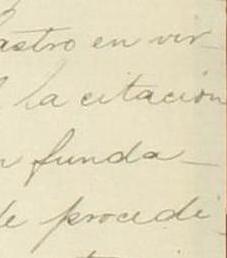 astro en vir-
la citación
funda-
de procedi-